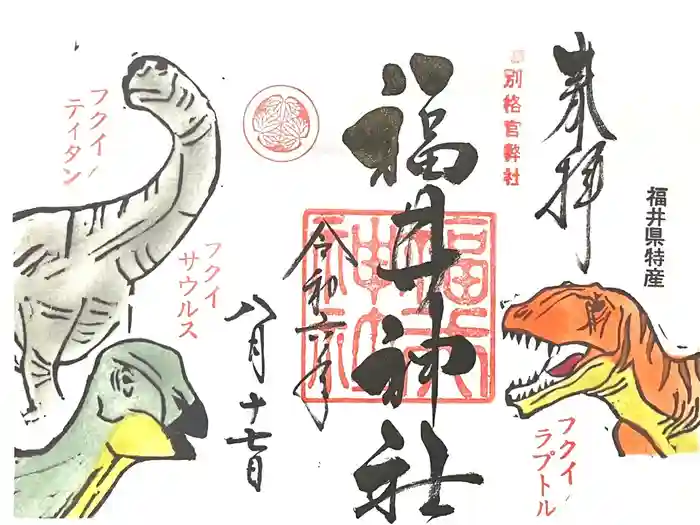 奉拝
福井県特産
フクイラプトル
別格官幣社
福井神社
福井神社
令和六年
八月十七日
フクイティタン
フクイサウルス